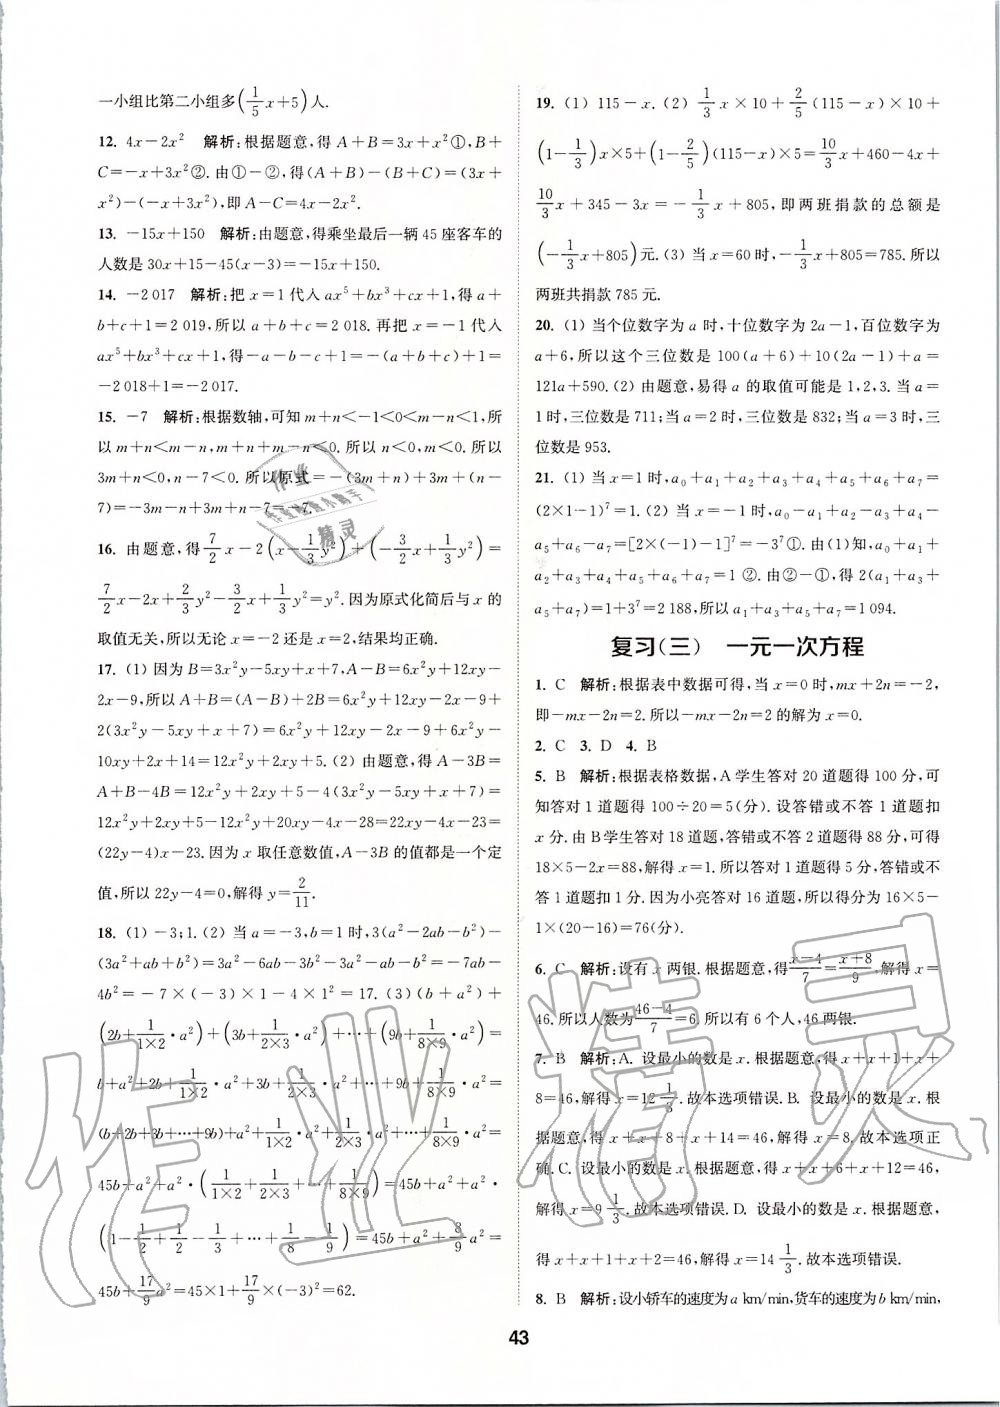 一小组比第二小组多(1/5 x+5)人.
12. 4x-2x² 解析:根据题意,得 A+B=3x+x²①,B+
C=-x+3x²②.由①-②,得(A+B)-(B+C)=(3x+
x²)-(-x+3x²),即A-C=4x-2x².
13. -15x+150 解析:由题意,得乘坐最后一辆45座客车的
人数是30x+15-45(x-3)=-15x+150.
14. -2 017 解析:把x=1代入ax⁵+bx³+cx+1,得a+
b+c+1=2 019,所以a+b+c=2 018.再把x=-1代入
ax⁵+bx³+cx+1,得-a-b-c+1=-(a+b+c)+1=
-2 018+1=-2 017.
15. -7 解析:根据数轴,可知m+n<-1<0<m-n<1,所
以m+n<m-n,m+n+m-n<0.所以n<0,m<0.所以
3m+n<0,n-7<0.所以原式=-(3m+n)+3m+(n
-7)=-3m-n+3m+n-7=-7.
16. 由题意,得7/2 x-2(x-1/3 y²)+(-3/2 x+1/3 y²)=
7/2 x-2x+2/3 y²-3/2 x+1/3 y²=y².因为原式化简后与x的
取值无关,所以无论x=-2还是x=2,结果均正确.
17. (1) 因为B=3x²y-5xy+x+7,A-B=6x²y+12xy-
2x-9,所以A+B=(A-B)+2B=6x²y+12xy-2x-9+
2(3x²y-5xy+x+7)=6x²y+12xy-2x-9+6x²y-
10xy+2x+14=12x²y+2xy+5.(2) 由题意,得A-3B=
A+B-4B=12x²y+2xy+5-4(3x²y-5xy+x+7)=
12x²y+2xy+5-12x²y+20xy-4x-28=22xy-4x-23=
(22y-4)x-23.因为x取任意数值,A-3B的值都是一个定
值,所以22y-4=0,解得y=2/11.
18. (1) -3;1.(2) 当a=-3,b=1时,3(a²-2ab-b²)-
(3a²+ab+b²)=3a²-6ab-3b²-3a²-ab-b²=-7ab-
4b²=-7×(-3)×1-4×1²=17.(3)(b+a²)+
(2b+1/1×2·a²)+(3b+1/2×3·a²)+…+(9b+1/8×9·a²)=
b+a²+2b+1/1×2·a²+3b+1/2×3·a²+…+9b+1/8×9·a²=
(b+2b+3b+…+9b)+a²+1/1×2·a²+1/2×3·a²+…+1/8×9·a²=
45b+a²+a²·(1/1×2+1/2×3+…+1/8×9)=45b+a²+a²·
(1-1/2+1/2-1/3+…+1/8-1/9)=45b+a²+8/9 a²=
45b+17/9 a²=45×1+17/9×(-3)²=62.
19. (1) 115-x.(2) 1/3 x×10+2/5(115-x)×10+
(1-1/3)x×5+(1-2/5)(115-x)×5=10/3 x+460-4x+
10/3 x+345-3x=-1/3 x+805,即两班捐款的总额是
(-1/3 x+805)元.(3) 当x=60时,-1/3 x+805=785.所以
两班共捐款785元.
20. (1) 当个位数字为a时,十位数字为2a-1,百位数字为
a+6,所以这个三位数是100(a+6)+10(2a-1)+a=
121a+590.(2) 由题意,易得a的取值可能是1,2,3.当a=
1时,三位数是711;当a=2时,三位数是832;当a=3时,三
位数是953.
21. (1) 当x=1时,a₀+a₁+a₂+a₃+a₄+a₅+a₆+a₇=
(2×1-1)⁷=1.(2) 当x=-1时,a₀-a₁+a₂-a₃+a₄-
a₅+a₆-a₇=[2×(-1)-1]⁷=-3⁷①.由(1)知,a₀+a₁+
a₂+a₃+a₄+a₅+a₆+a₇=1②.由②-①,得2(a₁+a₃+
a₅+a₇)=1+3⁷=2 188,所以a₁+a₃+a₅+a₇=1 094.
复习(三) 一元一次方程
1. C 解析:根据表中数据可得,当x=0时,mx+2n=-2,
即-mx-2n=2.所以-mx-2n=2的解为x=0.
2. C 3. D 4. B
5. B 解析:根据表格数据,A学生答对20道题得100分,可
知答对1道题得100÷20=5(分).设答错或不答1道题扣
x分.由B学生答对18道题,答错或不答2道题得88分,可得
18×5-2x=88,解得x=1.所以答对1道题得5分,答错或不
答1道题扣1分.因为小亮答对16道题,所以得分为16×5-
1×(20-16)=76(分).
6. C 解析:设有x两银.根据题意,得x-4/7=x+8/9,解得x=
46.所以人数为46-4/7=6.所以有6个人,46两银.
7. B 解析:A. 设最小的数是x.根据题意,得x+x+1+x+
8=46,解得x=12 1/3.故本选项错误.B. 设最小的数是x.根
据题意,得x+x+8+x+14=46,解得x=8.故本选项正
确.C. 设最小的数是x.根据题意,得x+x+6+x+12=46,
解得x=9 1/3.故本选项错误.D. 设最小的数是x.根据题意,
得x+x+1+x+2=46,解得x=14 1/3.故本选项错误.
8. B 解析:设小轿车的速度为a km/min,货车的速度为b km/min,
43
作业精灵